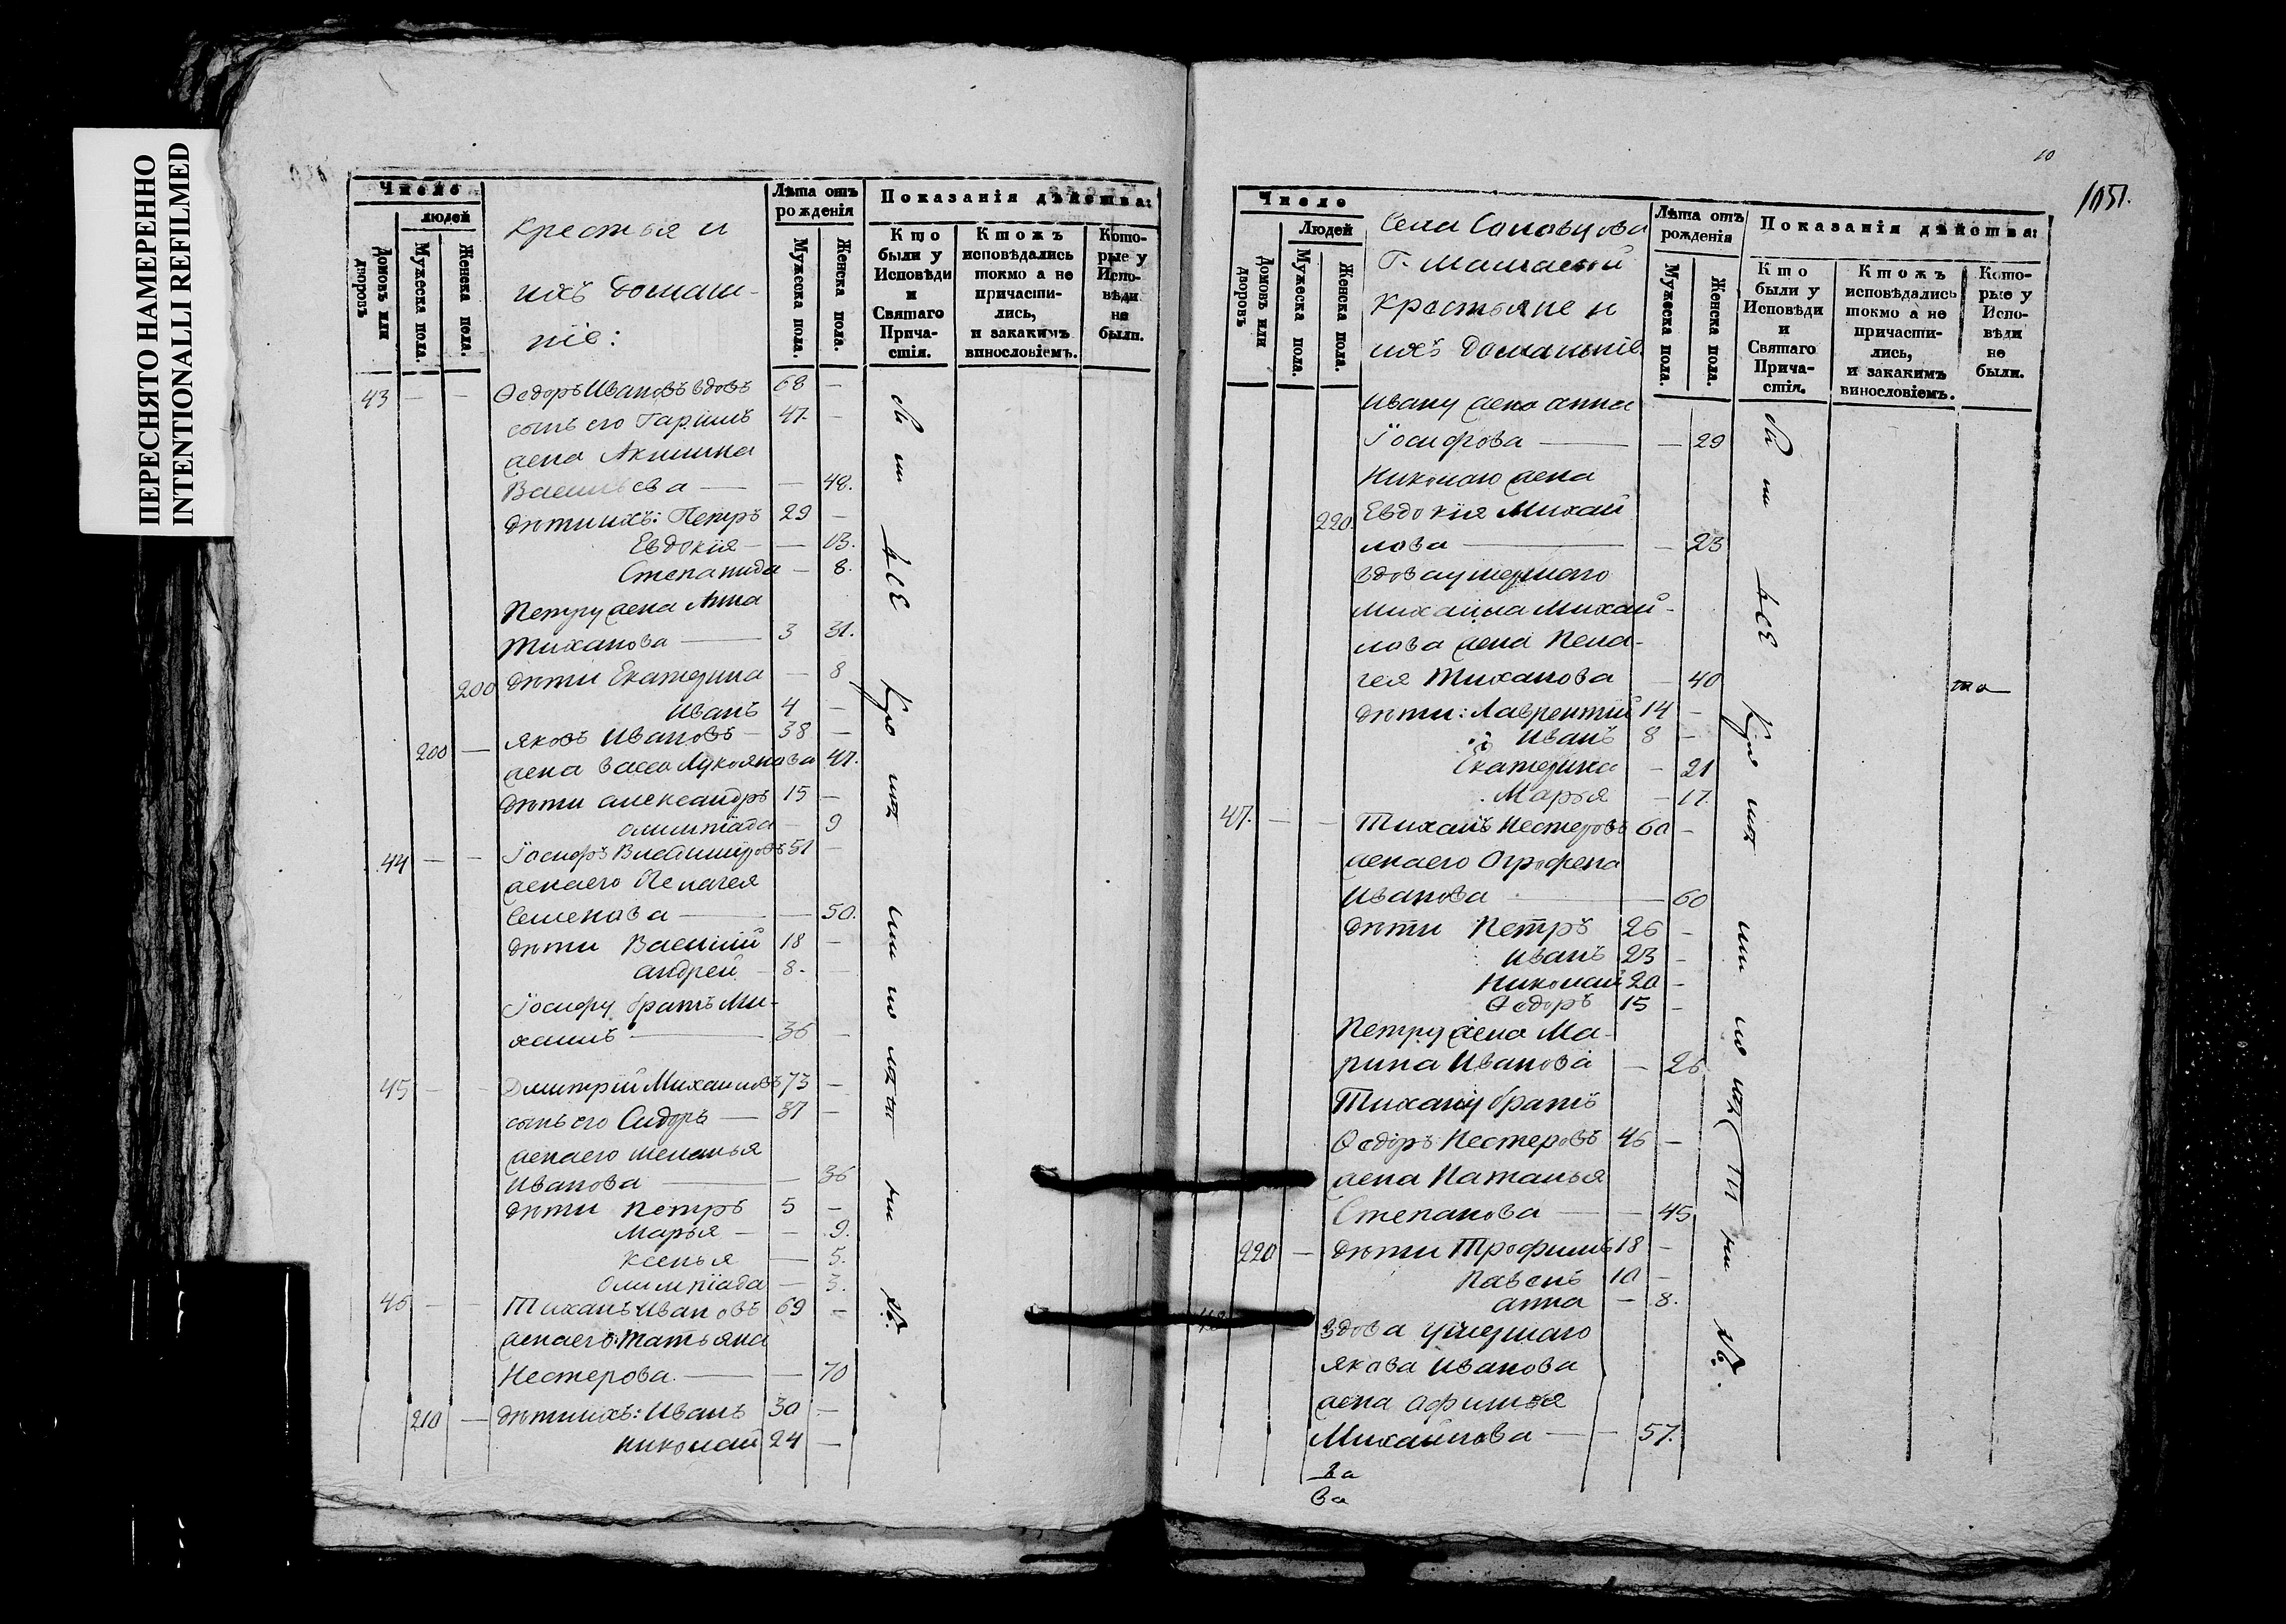 ПЕРЕСНЯТО НАМЕРЕННО
INTENTIONALLI REFILMED
Число
людей
Домовъ или дворовъ
Мужеска пола.
Женска пола.
Крестья и
ихъ домаш-
ніе:
Лѣта отъ рожденія
Мужеска пола.
Женска пола.
Показанія дѣйства:
Кто были у Исповѣди и Святаго Прича-стія.
Ктожъ исповѣдались токмо а не причасти-лись, и закакимъ винословіемъ.
Кото-рые у Испо-вѣди не были.
43 — — Ѳедоръ Ивановъ вдовъ 68 —
сынъ его 47 —
жена Акилина
Васильева — — 48.
дѣти ихъ: Петръ 29 —
Евдокія — — 13.
Степанида — 8.
Петру жена Анна
Тиханова — 3 31.
200 дѣти Екатерина — 8
Иванъ 4 —
200 — Яковъ Ивановъ — 38 —
жена Васса Лукоянова 47.
дѣти Александръ 15 —
Олимпіада — 9
44 — — Іосифъ 51 —
жена его Пелагея
Семенова — — 50.
дѣти Василій 18 —
Андрей — 8. —
Іосифу братъ Ми-
хаилъ — 36 —
45 — — Дмитрій Михаиловъ 73 —
сынъ его Сидоръ — 37 —
жена его Меланья
Иванова — — 36
дѣти Петръ 5 —
Марья — — 9.
Ксенья — 5.
Олимпіада — 3.
46 — — Тиханъ Ивановъ 69 —
жена его Татьяна
Нестерова. — — 70
210 — дѣти ихъ: Иванъ 30 —
Николай 24 —
10
1051.
Число
Людей
Домовъ или дворовъ
Мужеска пола.
Женска пола.
Села Соловцова
Г.
крестьяне и
ихъ домашніе.
Лѣта отъ рожденія
Мужеска пола.
Женска пола.
Показанія дѣйства:
Кто были у Исповѣди и Святаго Прича-стія.
Ктожъ исповѣдались токмо а не причасти-лись, и закакимъ винословіемъ.
Кото-рые у Испо-вѣди не были.
Ивану жена Анна
Іосифова — — 29
Николаю жена
220. Евдокія Михай
лова — — 23
вдова умершаго
Михайла Михай-
лова жена Пела-
гея Тиханова — 40
дѣти: Лаврентій 14 —
Иванъ 8 —
Екатерина — 21
Марья — 17.
47. — — Тиханъ Нестеровъ 60 —
жена его Огрофена
Иванова — — 60
дѣти Петръ 26 —
Иванъ 23 —
Николай 20 —
Ѳедоръ 15 —
Петру жена Ма-
рина Иванова — 26
Тихану братъ
Ѳедоръ Нестеровъ 46 —
жена Наталья
Степанова — — 45
220 — дѣти Трофимъ 18 —
Павелъ 10 —
Анна — 8.
48 вдова умершаго
Якова Иванова
жена Афимья
Михайлова — — 57.
ва
ва